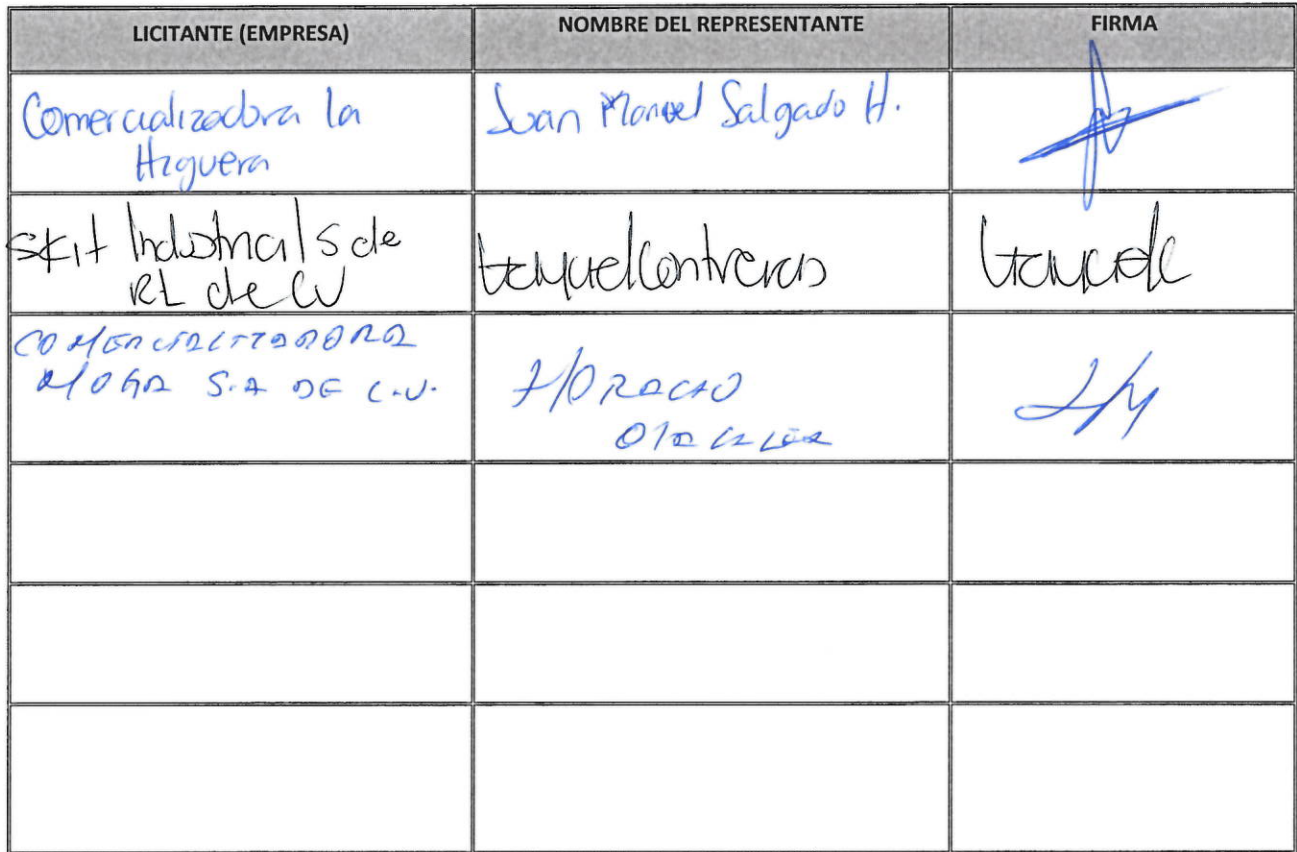 LICITANTE (EMPRESA) NOMBRE DEL REPRESENTANTE FIRMA
Comercializadora la
Higuera
Juan Manuel Salgado H.
Skit Industrial S de
RL de CV
Contreras
COMERCIALIZADORA
MOGA S.A DE C.V.
HORACIO